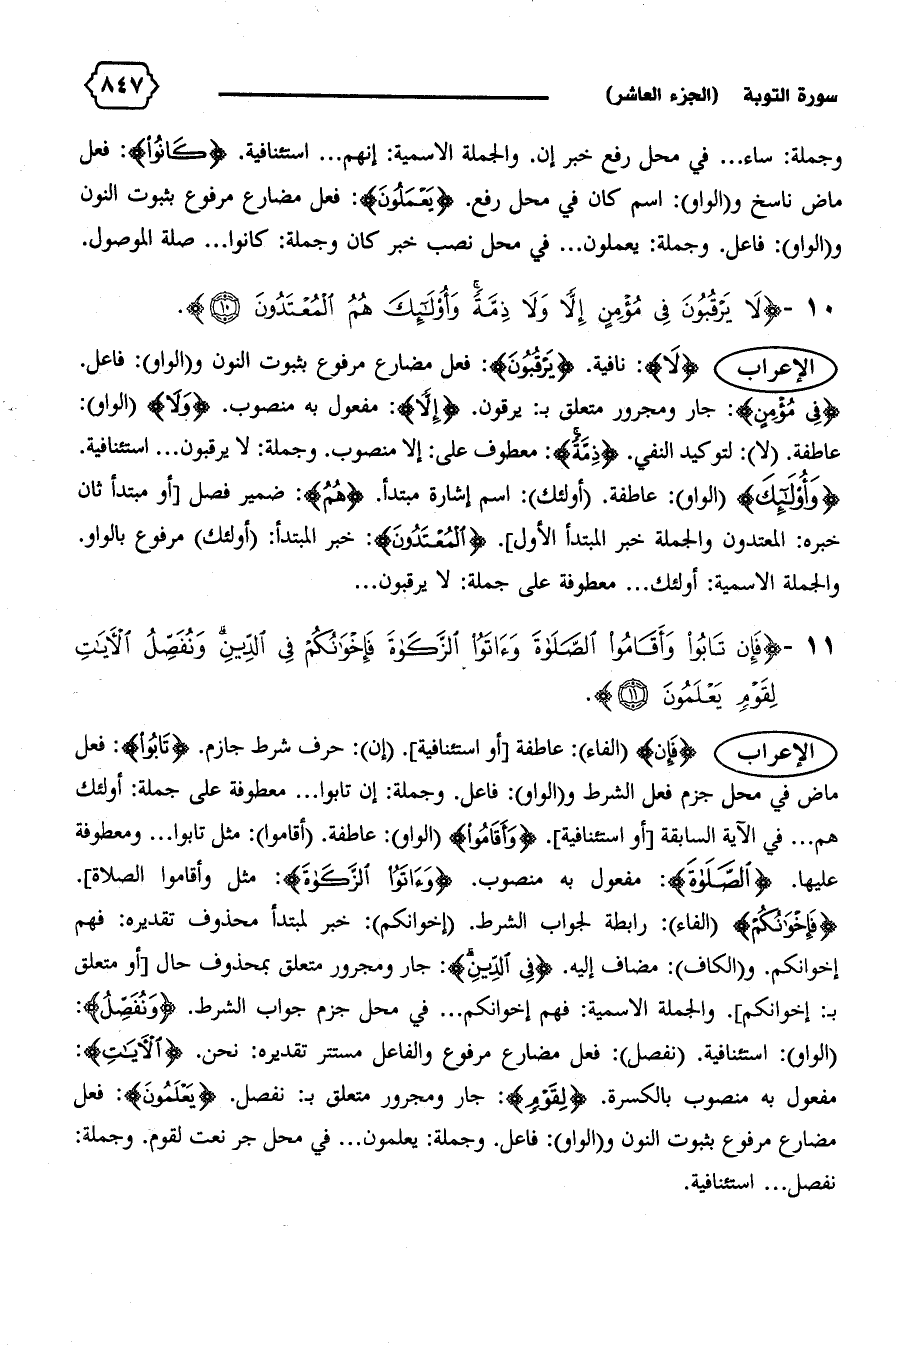 سورة التوبة (الجزء العاشر) ٨٤٧
وجملة: ساء... في محل رفع خبر إن. والجملة الاسمية: إنهم... استئنافية. ﴿كَانُوا۟﴾: فعل
ماض ناسخ و(الواو): اسم كان في محل رفع. ﴿يَعْمَلُونَ﴾: فعل مضارع مرفوع بثبوت النون
و(الواو): فاعل. وجملة: يعملون... في محل نصب خبر كان وجملة: كانوا... صلة الموصول.
١٠ - ﴿لَا يَرْقُبُونَ فِى مُؤْمِنٍ إِلًّا وَلَا ذِمَّةً ۚ وَأُو۟لَـٰٓئِكَ هُمُ ٱلْمُعْتَدُونَ ١٠﴾.
الإعراب ﴿لَا﴾: نافية. ﴿يَرْقُبُونَ﴾: فعل مضارع مرفوع بثبوت النون و(الواو): فاعل.
﴿فِى مُؤْمِنٍ﴾: جار ومجرور متعلق بـ: يرقون. ﴿إِلًّا﴾: مفعول به منصوب. ﴿وَلَا﴾ (الواو):
عاطفة. (لا): لتوكيد النفي. ﴿ذِمَّةً ۚ﴾: معطوف على: إلا منصوب. وجملة: لا يرقبون... استئنافية.
﴿وَأُو۟لَـٰٓئِكَ﴾ (الواو): عاطفة. (أولئك): اسم إشارة مبتدأ. ﴿هُمُ﴾: ضمير فصل [أو مبتدأ ثان
خبره: المعتدون والجملة خبر المبتدأ الأول]. ﴿ٱلْمُعْتَدُونَ﴾: خبر المبتدأ: (أولئك) مرفوع بالواو.
والجملة الاسمية: أولئك... معطوفة على جملة: لا يرقبون...
١١ - ﴿فَإِن تَابُوا۟ وَأَقَامُوا۟ ٱلصَّلَوٰةَ وَءَاتَوُا۟ ٱلزَّكَوٰةَ فَإِخْوَٰنُكُمْ فِى ٱلدِّينِ ۗ وَنُفَصِّلُ ٱلْـَٔايَـٰتِ
لِقَوْمٍ يَعْلَمُونَ ١١﴾.
الإعراب ﴿فَإِن﴾ (الفاء): عاطفة [أو استئنافية]. (إن): حرف شرط جازم. ﴿تَابُوا۟﴾: فعل
ماض في محل جزم فعل الشرط و(الواو): فاعل. وجملة: إن تابوا... معطوفة على جملة: أولئك
هم... في الآية السابقة [أو استئنافية]. ﴿وَأَقَامُوا۟﴾ (الواو): عاطفة. (أقاموا): مثل تابوا... ومعطوفة
عليها. ﴿ٱلصَّلَوٰةَ﴾: مفعول به منصوب. ﴿وَءَاتَوُا۟ ٱلزَّكَوٰةَ﴾: مثل وأقاموا الصلاة].
﴿فَإِخْوَٰنُكُمْ﴾ (الفاء): رابطة لجواب الشرط. (إخوانكم): خبر لمبتدأ محذوف تقديره: فهم
إخوانكم. و(الكاف): مضاف إليه. ﴿فِى ٱلدِّينِ ۗ﴾: جار ومجرور متعلق بمحذوف حال [أو متعلق
بـ: إخوانكم]. والجملة الاسمية: فهم إخوانكم... في محل جزم جواب الشرط. ﴿وَنُفَصِّلُ﴾:
(الواو): استئنافية. (نفصل): فعل مضارع مرفوع والفاعل مستتر تقديره: نحن. ﴿ٱلْـَٔايَـٰتِ﴾:
مفعول به منصوب بالكسرة. ﴿لِقَوْمٍ﴾: جار ومجرور متعلق بـ: نفصل. ﴿يَعْلَمُونَ﴾: فعل
مضارع مرفوع بثبوت النون و(الواو): فاعل. وجملة: يعلمون... في محل جر نعت لقوم. وجملة:
نفصل... استئنافية.